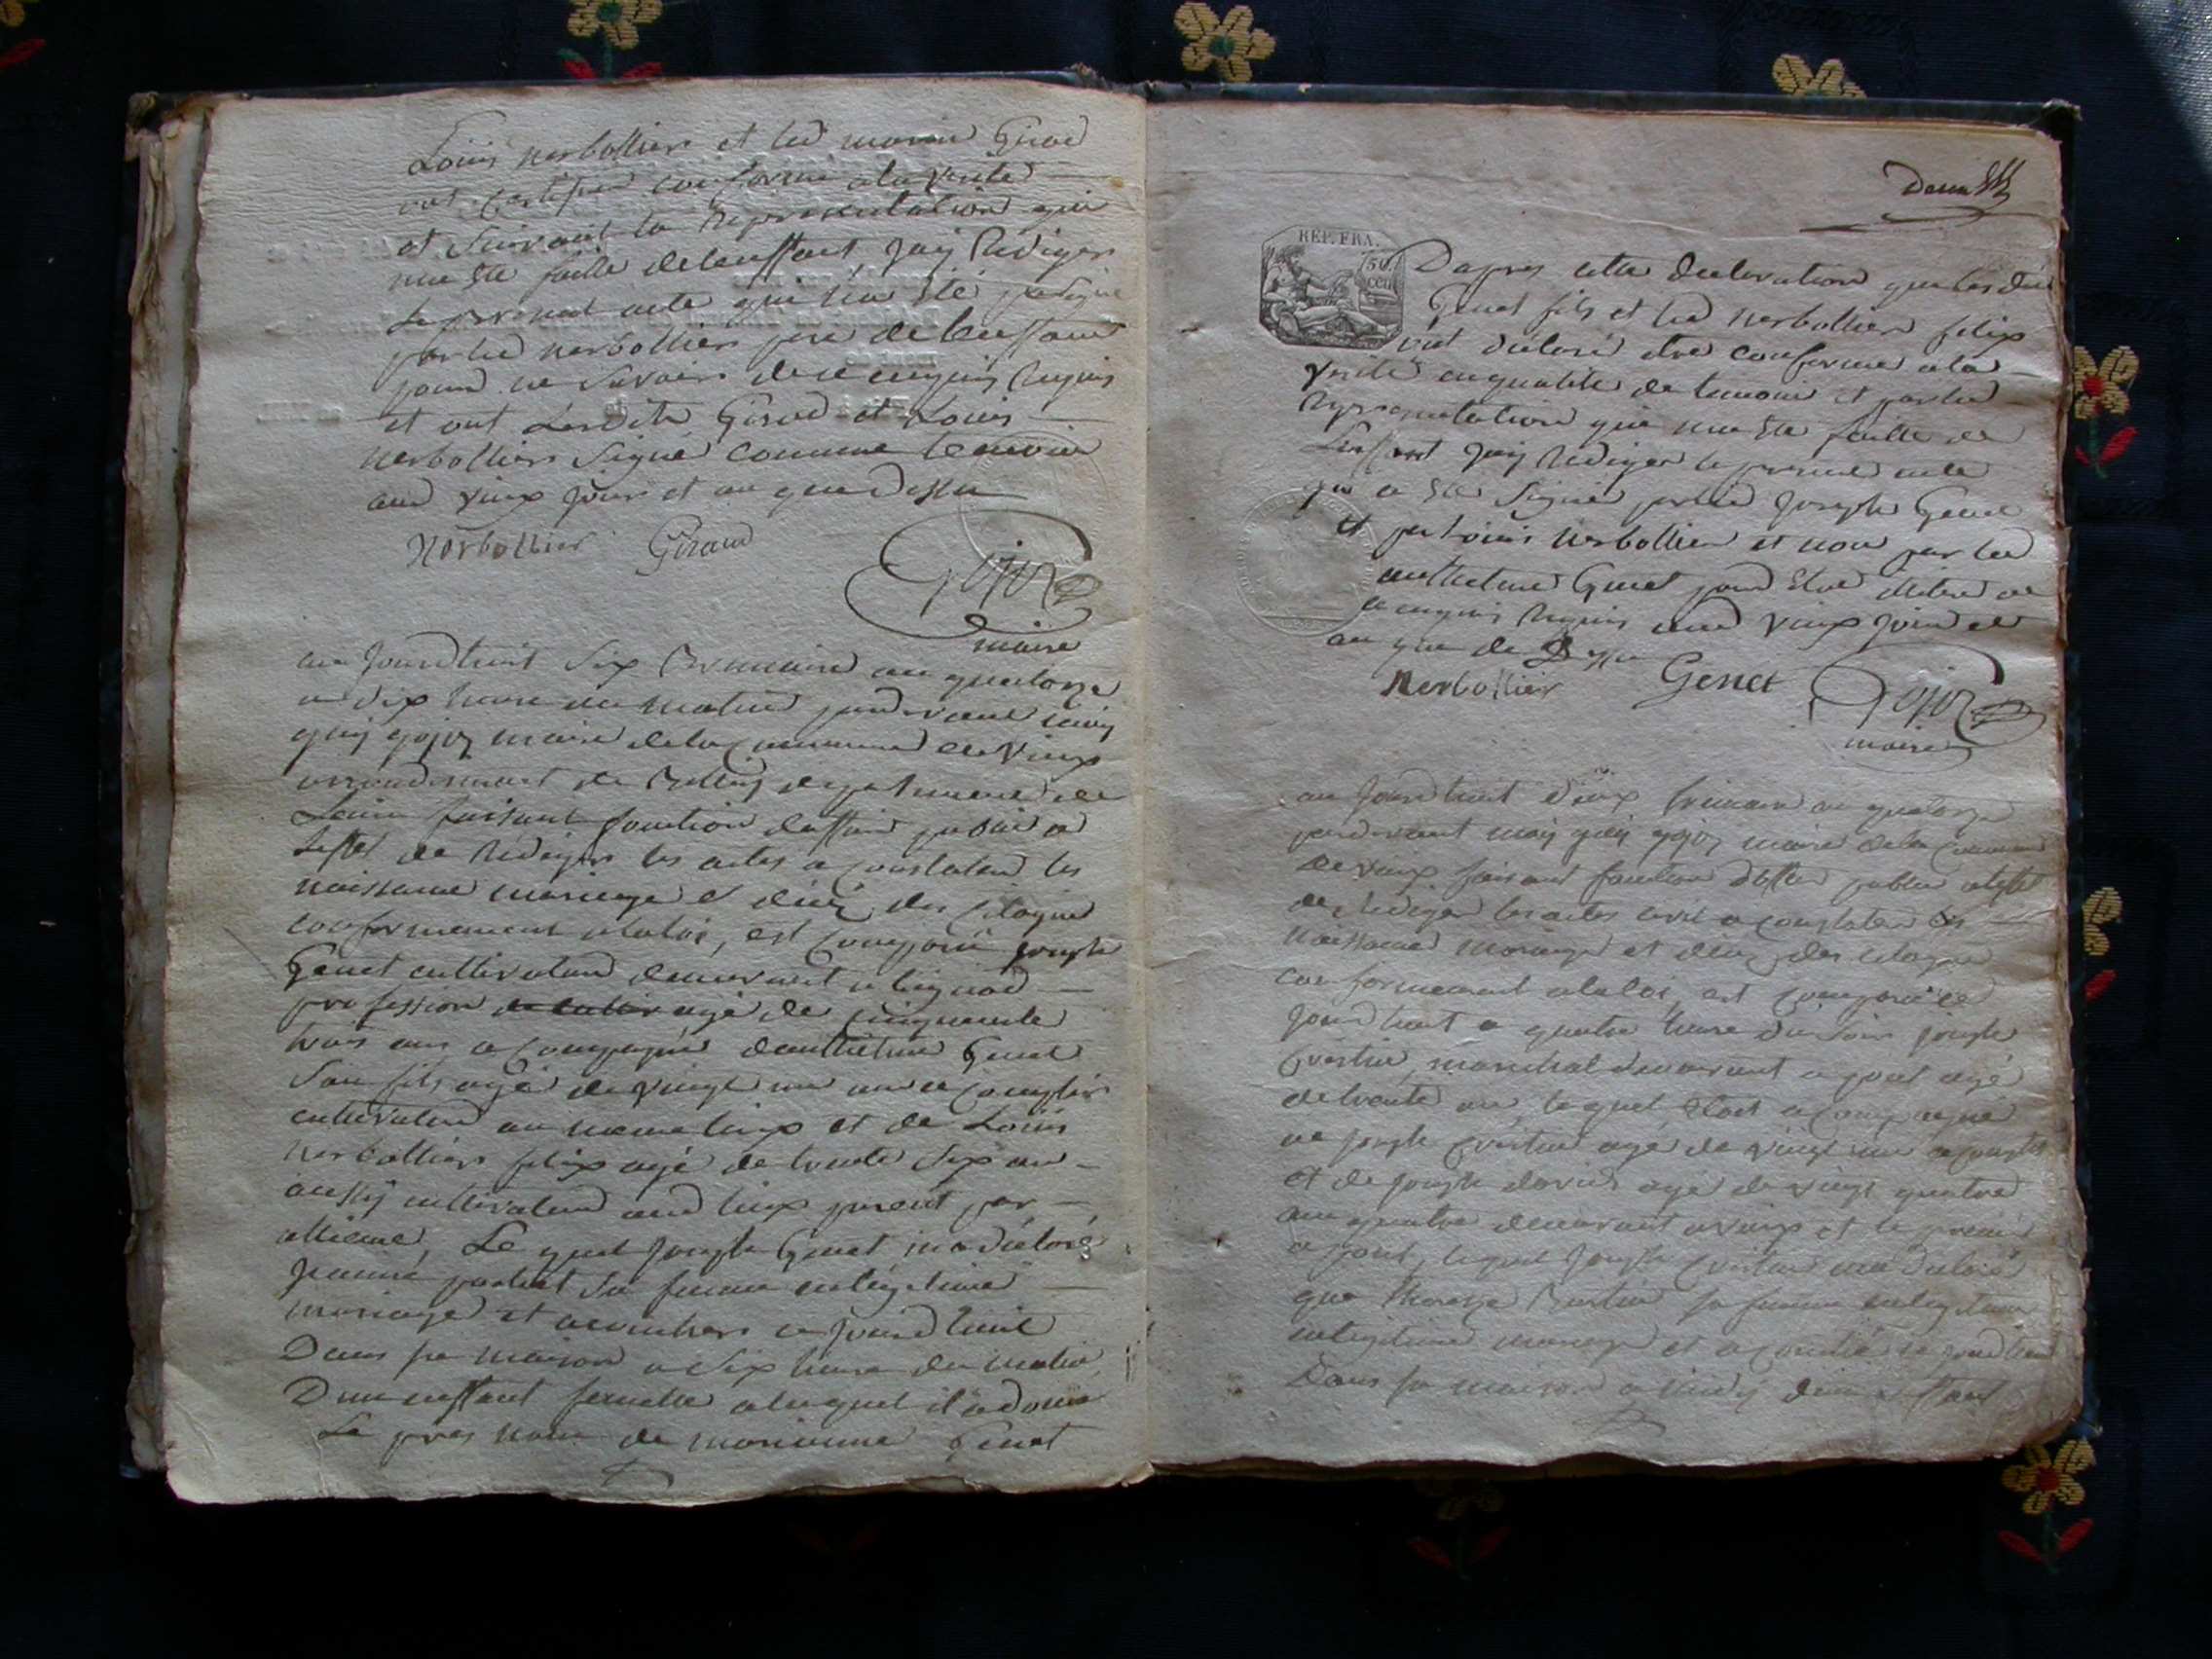 Louis nerbollier et led morin Girod
ont certifier conforme ala verite
et suivant la representation qui
ma ete faitte delenffant, Jay Rediger
Le present acte qui na ete pa signe
par led nerbollier pere de lenffant
pour ne savoir de ce enquis Requis
et ont Lesdits Girod et Louis
nerbollier Signé comme temoin
aud vieux jour et an que dessu
Nerbollier Giraud
Gojoz
maire
au jourdhuit six Brumaire an quatorze
a dix heure du matin pardevant moy
guy gojoz maire dela Commune de vieux
arrondisment de Belley departement de
Lain faisant fonction daffisié public a
Leffet de Rediger les actes a constater les
naissance mariage et décé des Citoyens
conformement alaloi, est comparu joseph
Genet cultivateur demeurant a lignod
profession agé de cinquante
trois ans acompagné danthelme Genet
Son fils agé de vingt un an acomplis
cultivateur au meme lieux et de Louis
Nerbollier felix agé de trente Six an
aussy cultivateur aud lieux parent par
alliance, Le quel joseph Genet ma déclaré
jeanne sa femme enlégitime
mariage et acouchers ce jourd'huit
Dans sa maison a six heure du matin
Dun enffant femelle alaquel il a donné
Le pres nom de marianne Genet
REP. FRA.
50
CEN
Dapres cette declaration que lesdits
Genet fils et led nerbollier felix
ont déclaré etre conforme ala
verité enqualité de temoin et parla
representation qui ma ete faitte de
Lenffant Jay Rediger le present acte
qui a ete Signé parled Joseph Genet
et par Louis nerbollier et non par led
anthelme Genet pour etre iletré de
ce enquis Requis aud vieux jour et
an que de Dessu
Nerbollier Genet
Gojoz
maire
au jourdhuit deux frimaire an quatorze
pardevant moy guy gojoz maire dela Commune
de vieux faisant fonction daffisié public aleffet
de Rediger les actes civil a constater les
naissance mariage et décé des citoyens
conformement alaloi, est comparu ce
jourdhuit a quatre heure du soir joseph
marechal demeurant a pont agé
detrente an, lequel etoit acompagné
de joseph agé de vingt un acomplis
et de joseph david agé de vingt quatre
demeurant a vieux et le premié
a pont, lequel joseph ma declaré
que sa femme
enlegitime mariage et acouché ce jourdhui
Dans sa maison a midy dun enffant